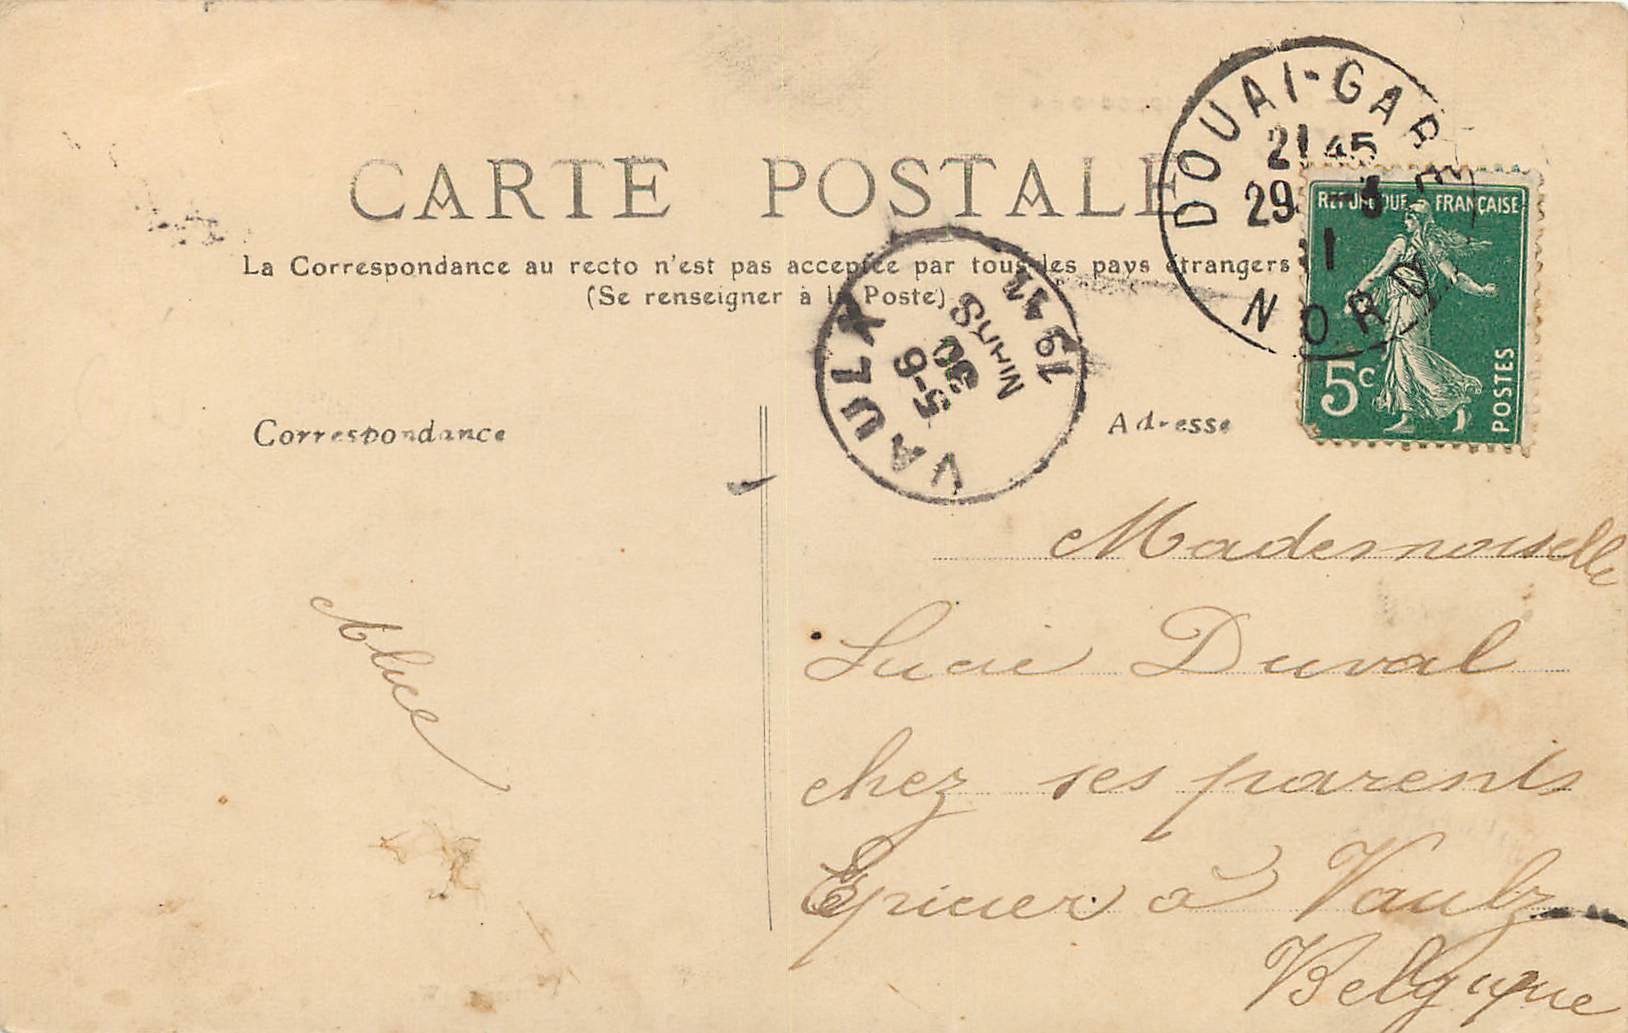 CARTE POSTALE
La Correspondance au recto n'est pas acceptée par tous les pays étrangers
(Se renseigner à la Poste)
DOUAI-GARE
21 45
29 - 3
11
NORD
REPUBLIQUE FRANÇAISE
5c
POSTES
VAULX
5-6
30
MARS
1911
Correspondance
Adresse
Alice
Mademoiselle
Lucie Duval
chez ses parents
Epicier à Vaulx
Belgique